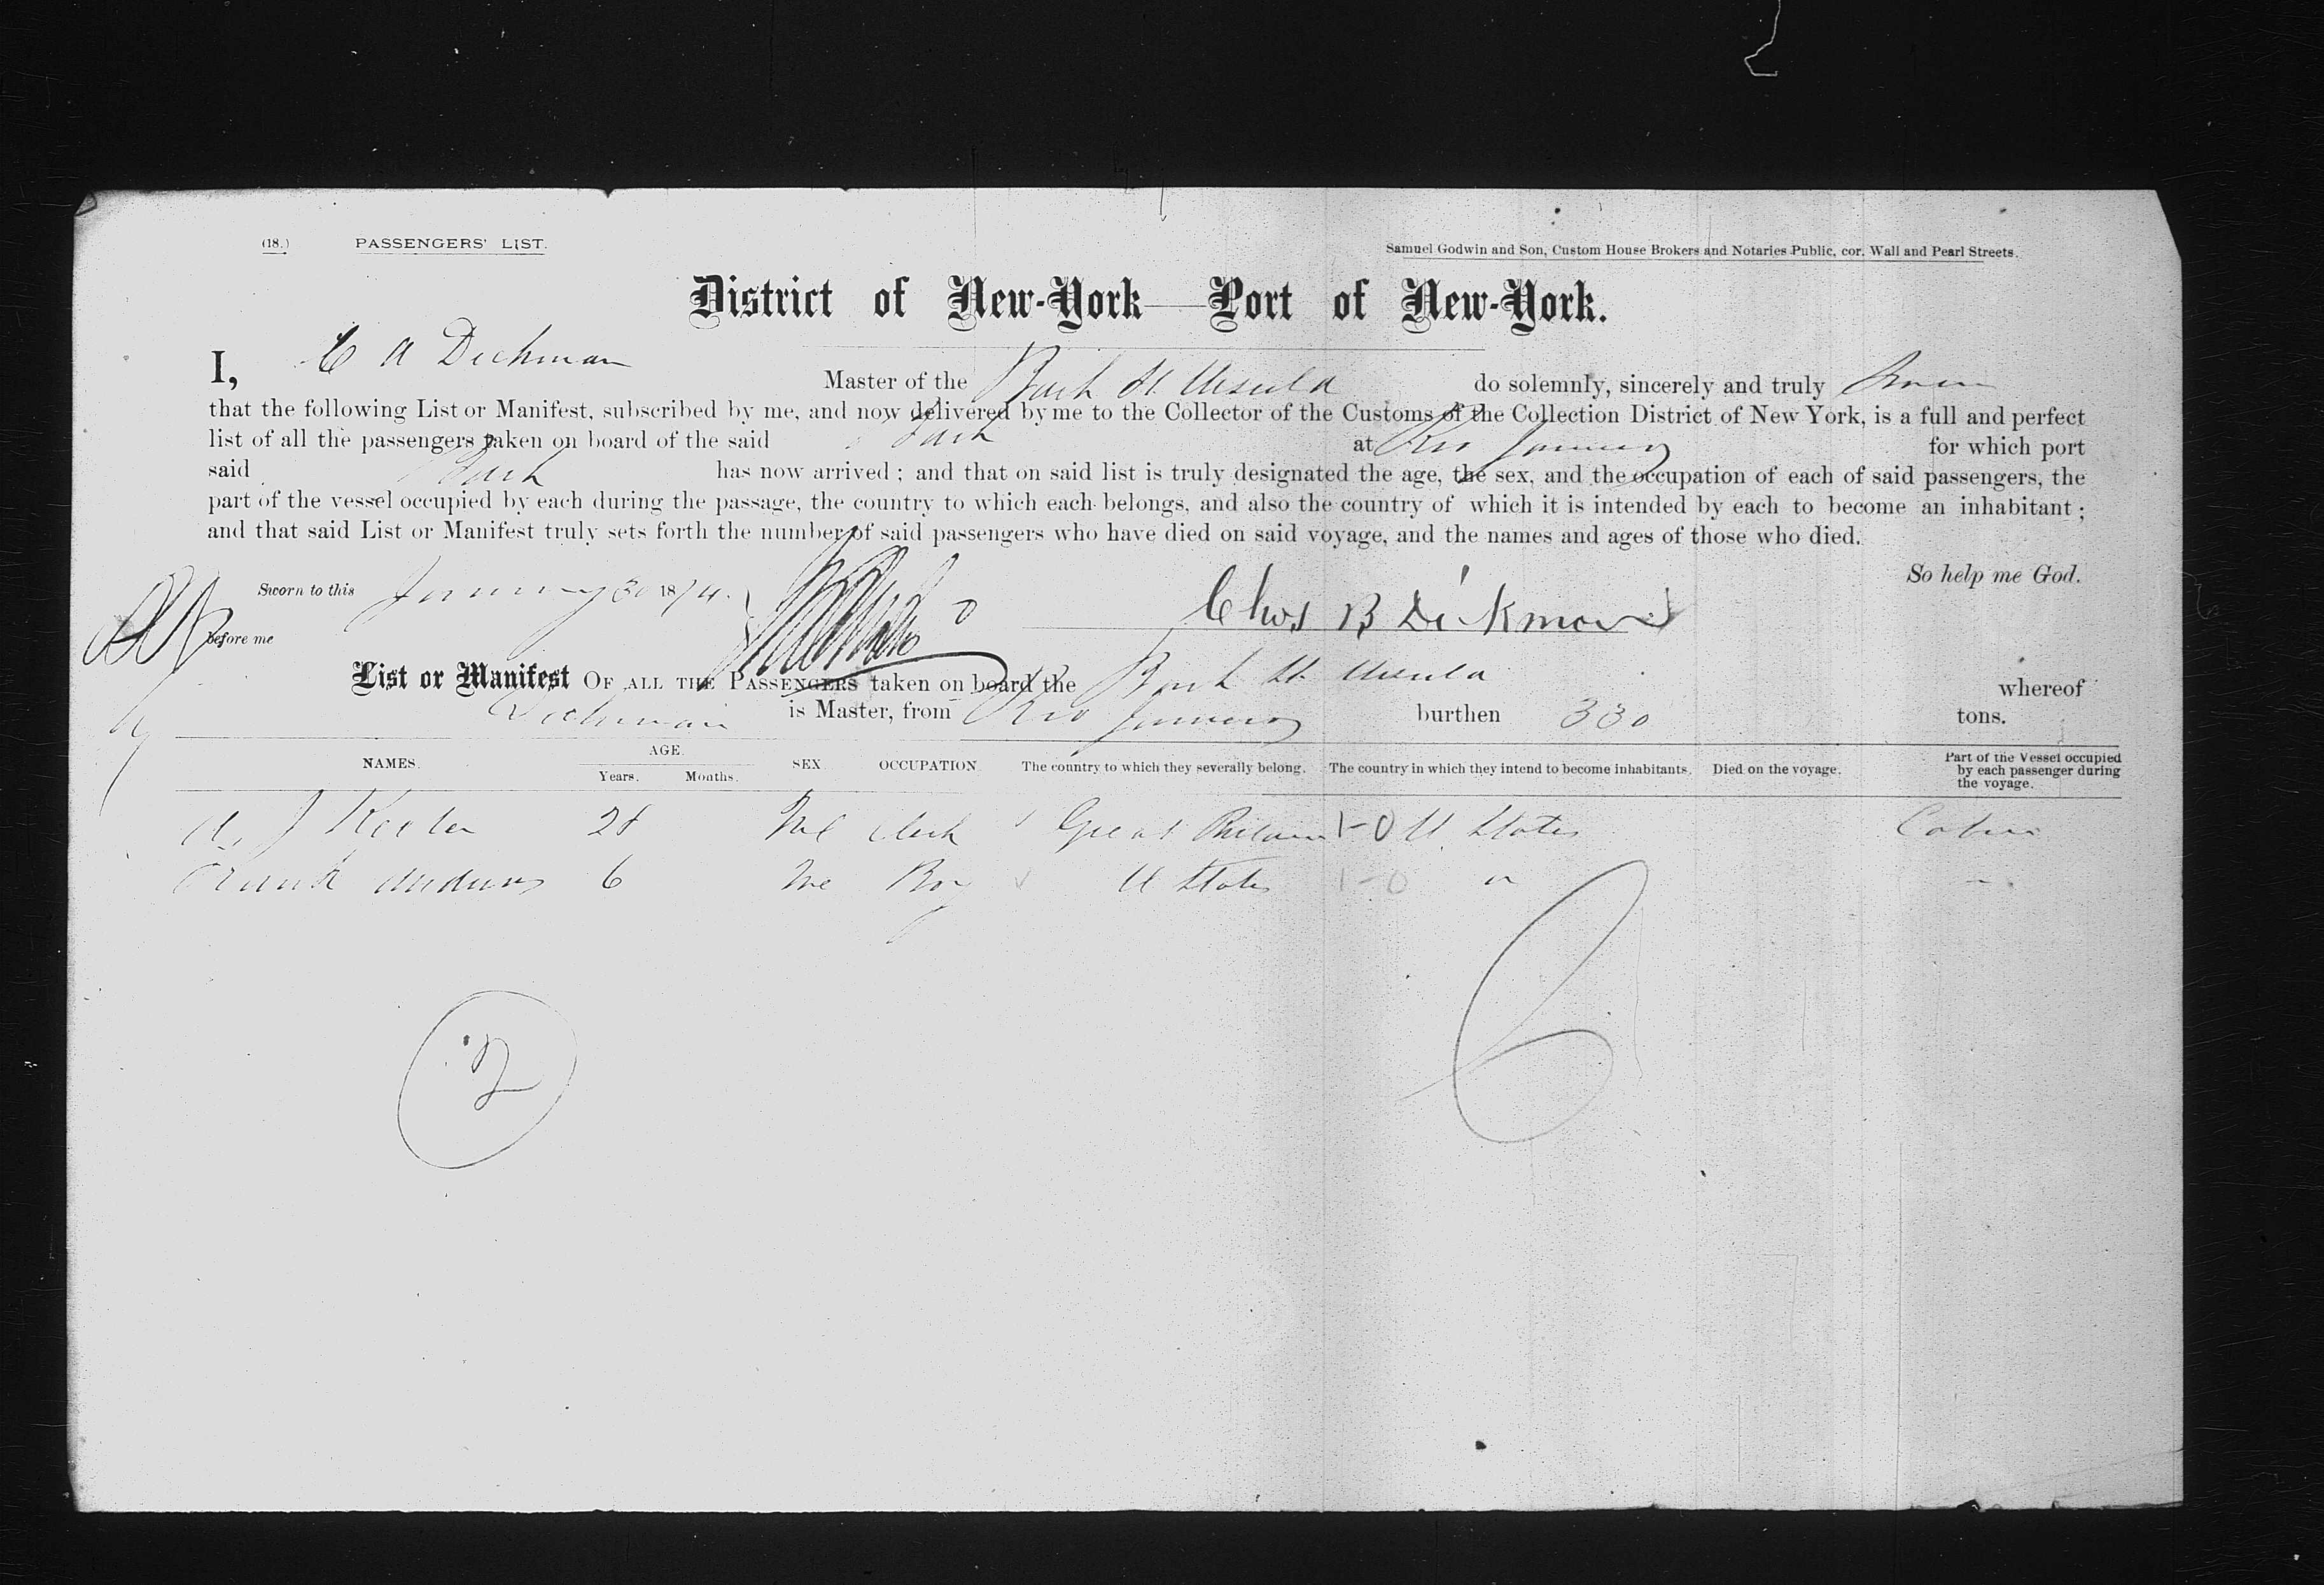 (18.) PASSENGERS' LIST.
Samuel Godwin and Son, Custom House Brokers and Notaries Public, cor. Wall and Pearl Streets.
District of New-York—Port of New-York.
I, C A Dickman Master of the Bark St Ursula do solemnly, sincerely and truly Swear
that the following List or Manifest, subscribed by me, and now delivered by me to the Collector of the Customs of the Collection District of New York, is a full and perfect
list of all the passengers taken on board of the said Bark at Rio Janeiro for which port
said Bark has now arrived; and that on said list is truly designated the age, the sex, and the occupation of each of said passengers, the
part of the vessel occupied by each during the passage, the country to which each belongs, and also the country of which it is intended by each to become an inhabitant;
and that said List or Manifest truly sets forth the number of said passengers who have died on said voyage, and the names and ages of those who died.
So help me God.
Sworn to this January 30 1874.
before me
Chas B Dickman
List or Manifest OF ALL THE PASSENGERS taken on board the Bark St. Ursula whereof
Dickman is Master, from Rio Janeiro burthen 330 tons.
NAMES. AGE. Years. Months. SEX. OCCUPATION. The country to which they severally belong. The country in which they intend to become inhabitants. Died on the voyage. Part of the Vessel occupied by each passenger during the voyage.
A. J 28 Ml Clerk Great Britain 1-0 U. States Cabin
Frank Andrews 6 Me Boy U States 1-0 "
2